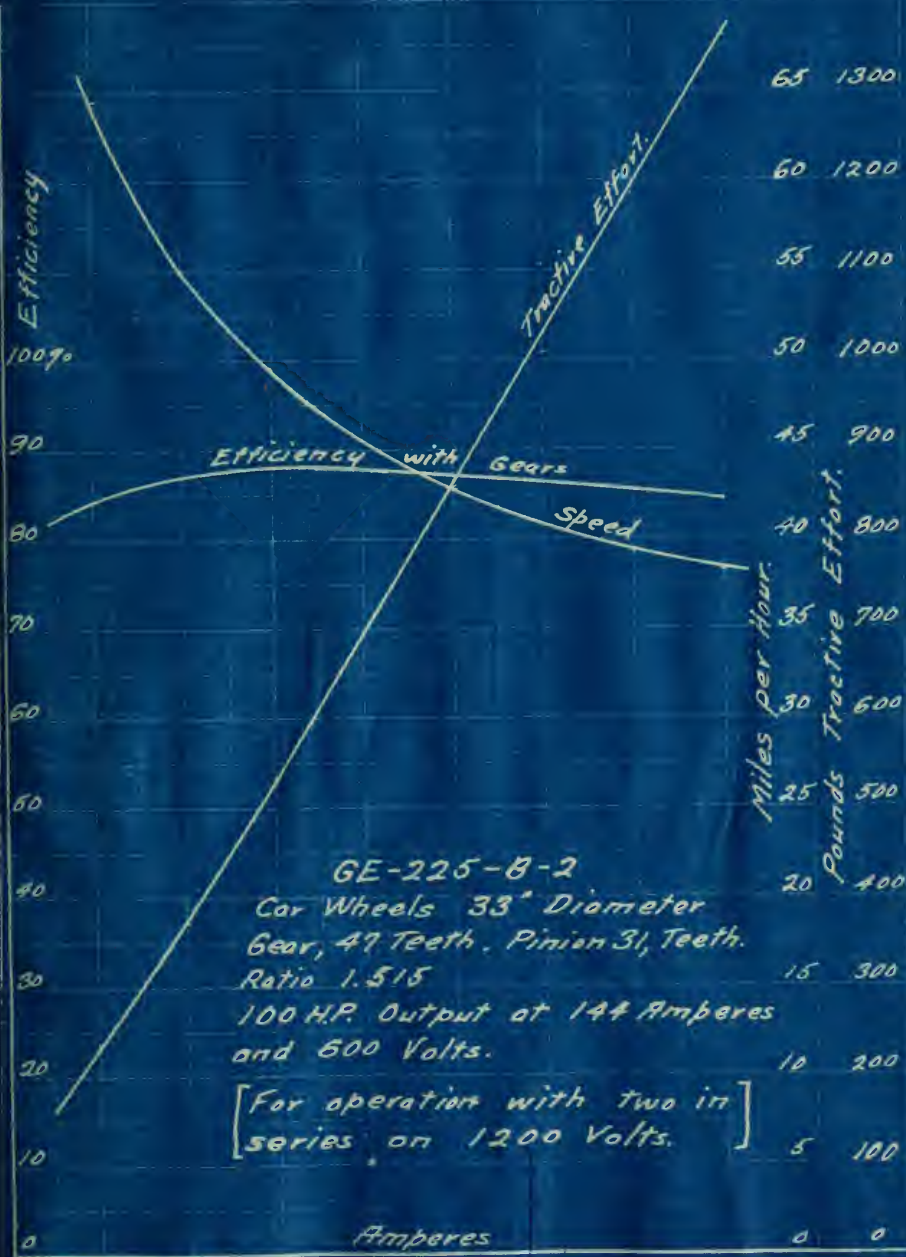 Efficiency
100%
90
80
70
60
50
40
30
20
10
0
Efficiency with Gears
Speed
Tractive Effort.
65 1300
60 1200
55 1100
50 1000
45 900
40 800
35 700
30 600
25 500
20 400
15 300
10 200
5 100
0 0
Miles per Hour.
Pounds Tractive Effort.
GE-225-B-2
Car Wheels 33" Diameter
Gear, 47 Teeth. Pinion 31, Teeth.
Ratio 1.515
100 H.P. Output at 144 Amperes
and 600 Volts.
[For operation with two in
series on 1200 Volts.]
Amperes